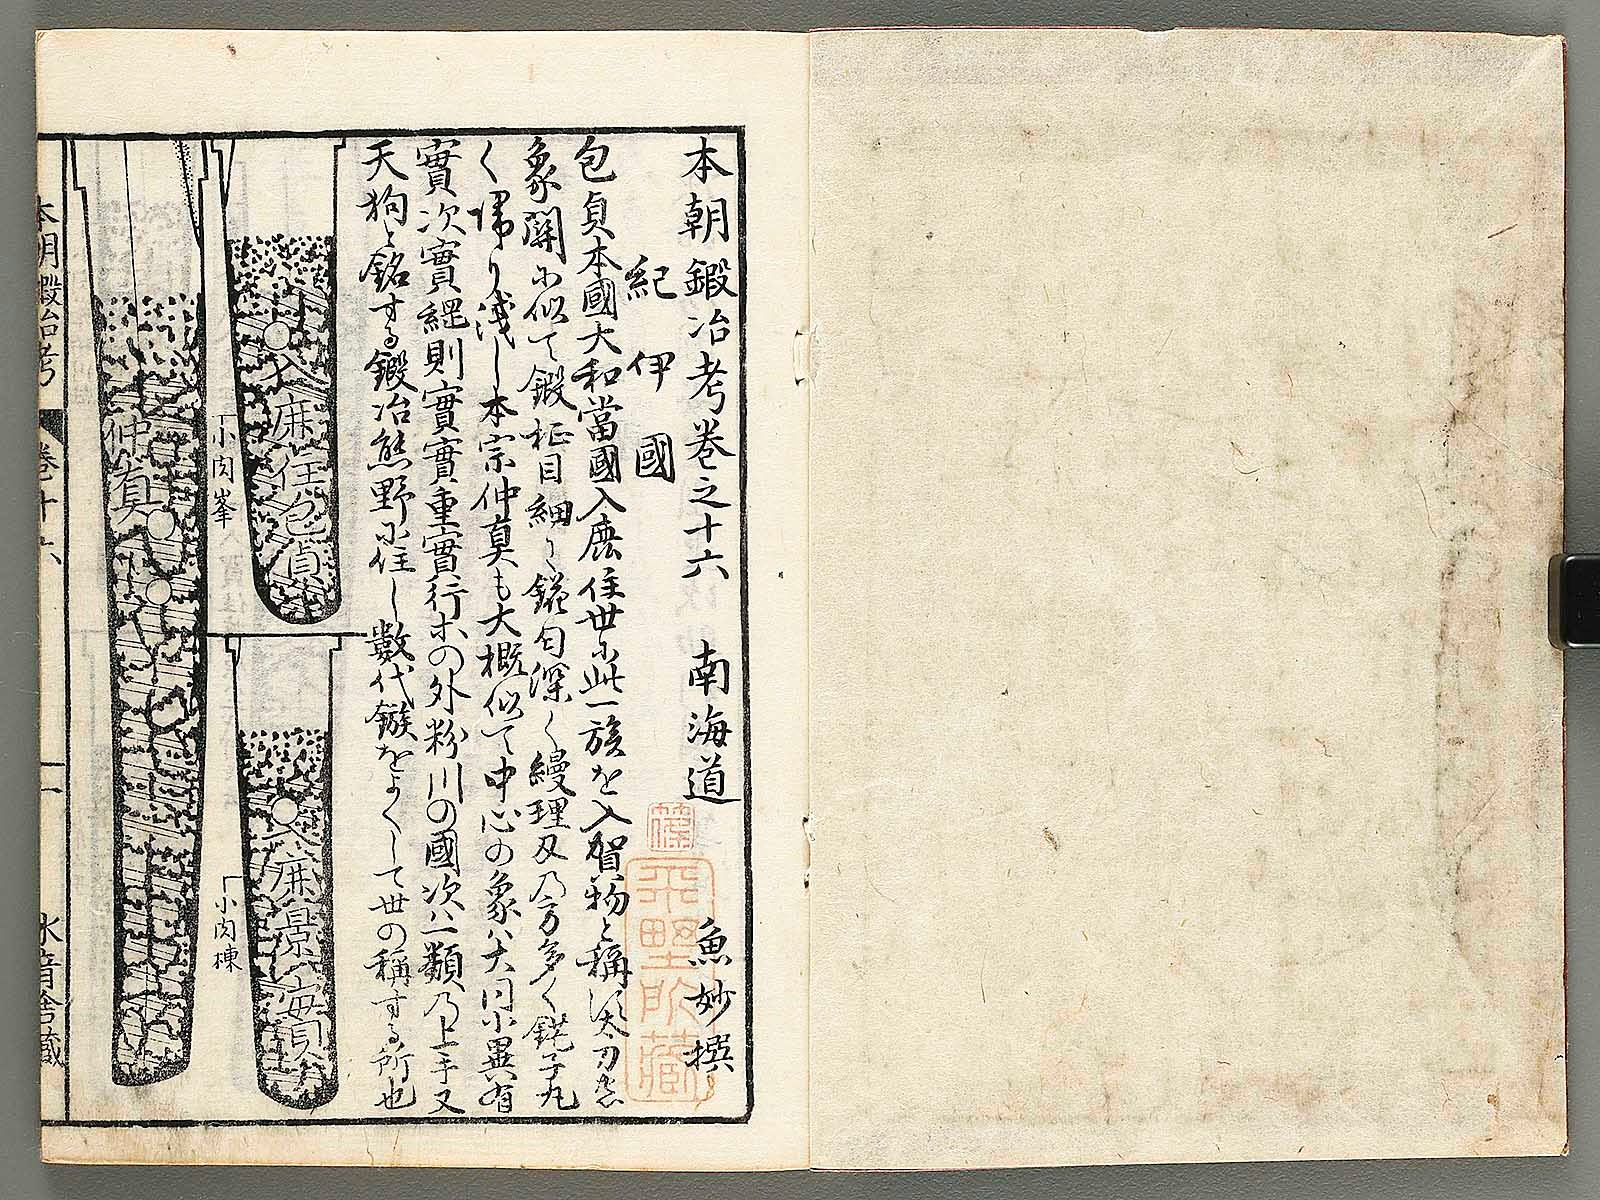 本朝鍛冶考巻之十六 南海道 魚妙撰
紀伊國
包貞本國大和當國入鹿住世ニ此一族を入賀物と稱須太刀の
象關ニ似て鍛柾目細く鎰匂深く縵理及乃方多く鋩子丸
く帰り浅し本宗仲真も大概似て中心の象ハ大同小異有
實次實綱則實實重實行ホの外粉川の國次ハ一類乃上手又
天狗と銘する鍛冶熊野ニ住し數代鏃をよくして世の稱する所也
入麻住包貞
小肉峯
入麻景實
小肉棟
仲真
本朝鍛冶考 巻十六 一 水音舎藏
平野所藏